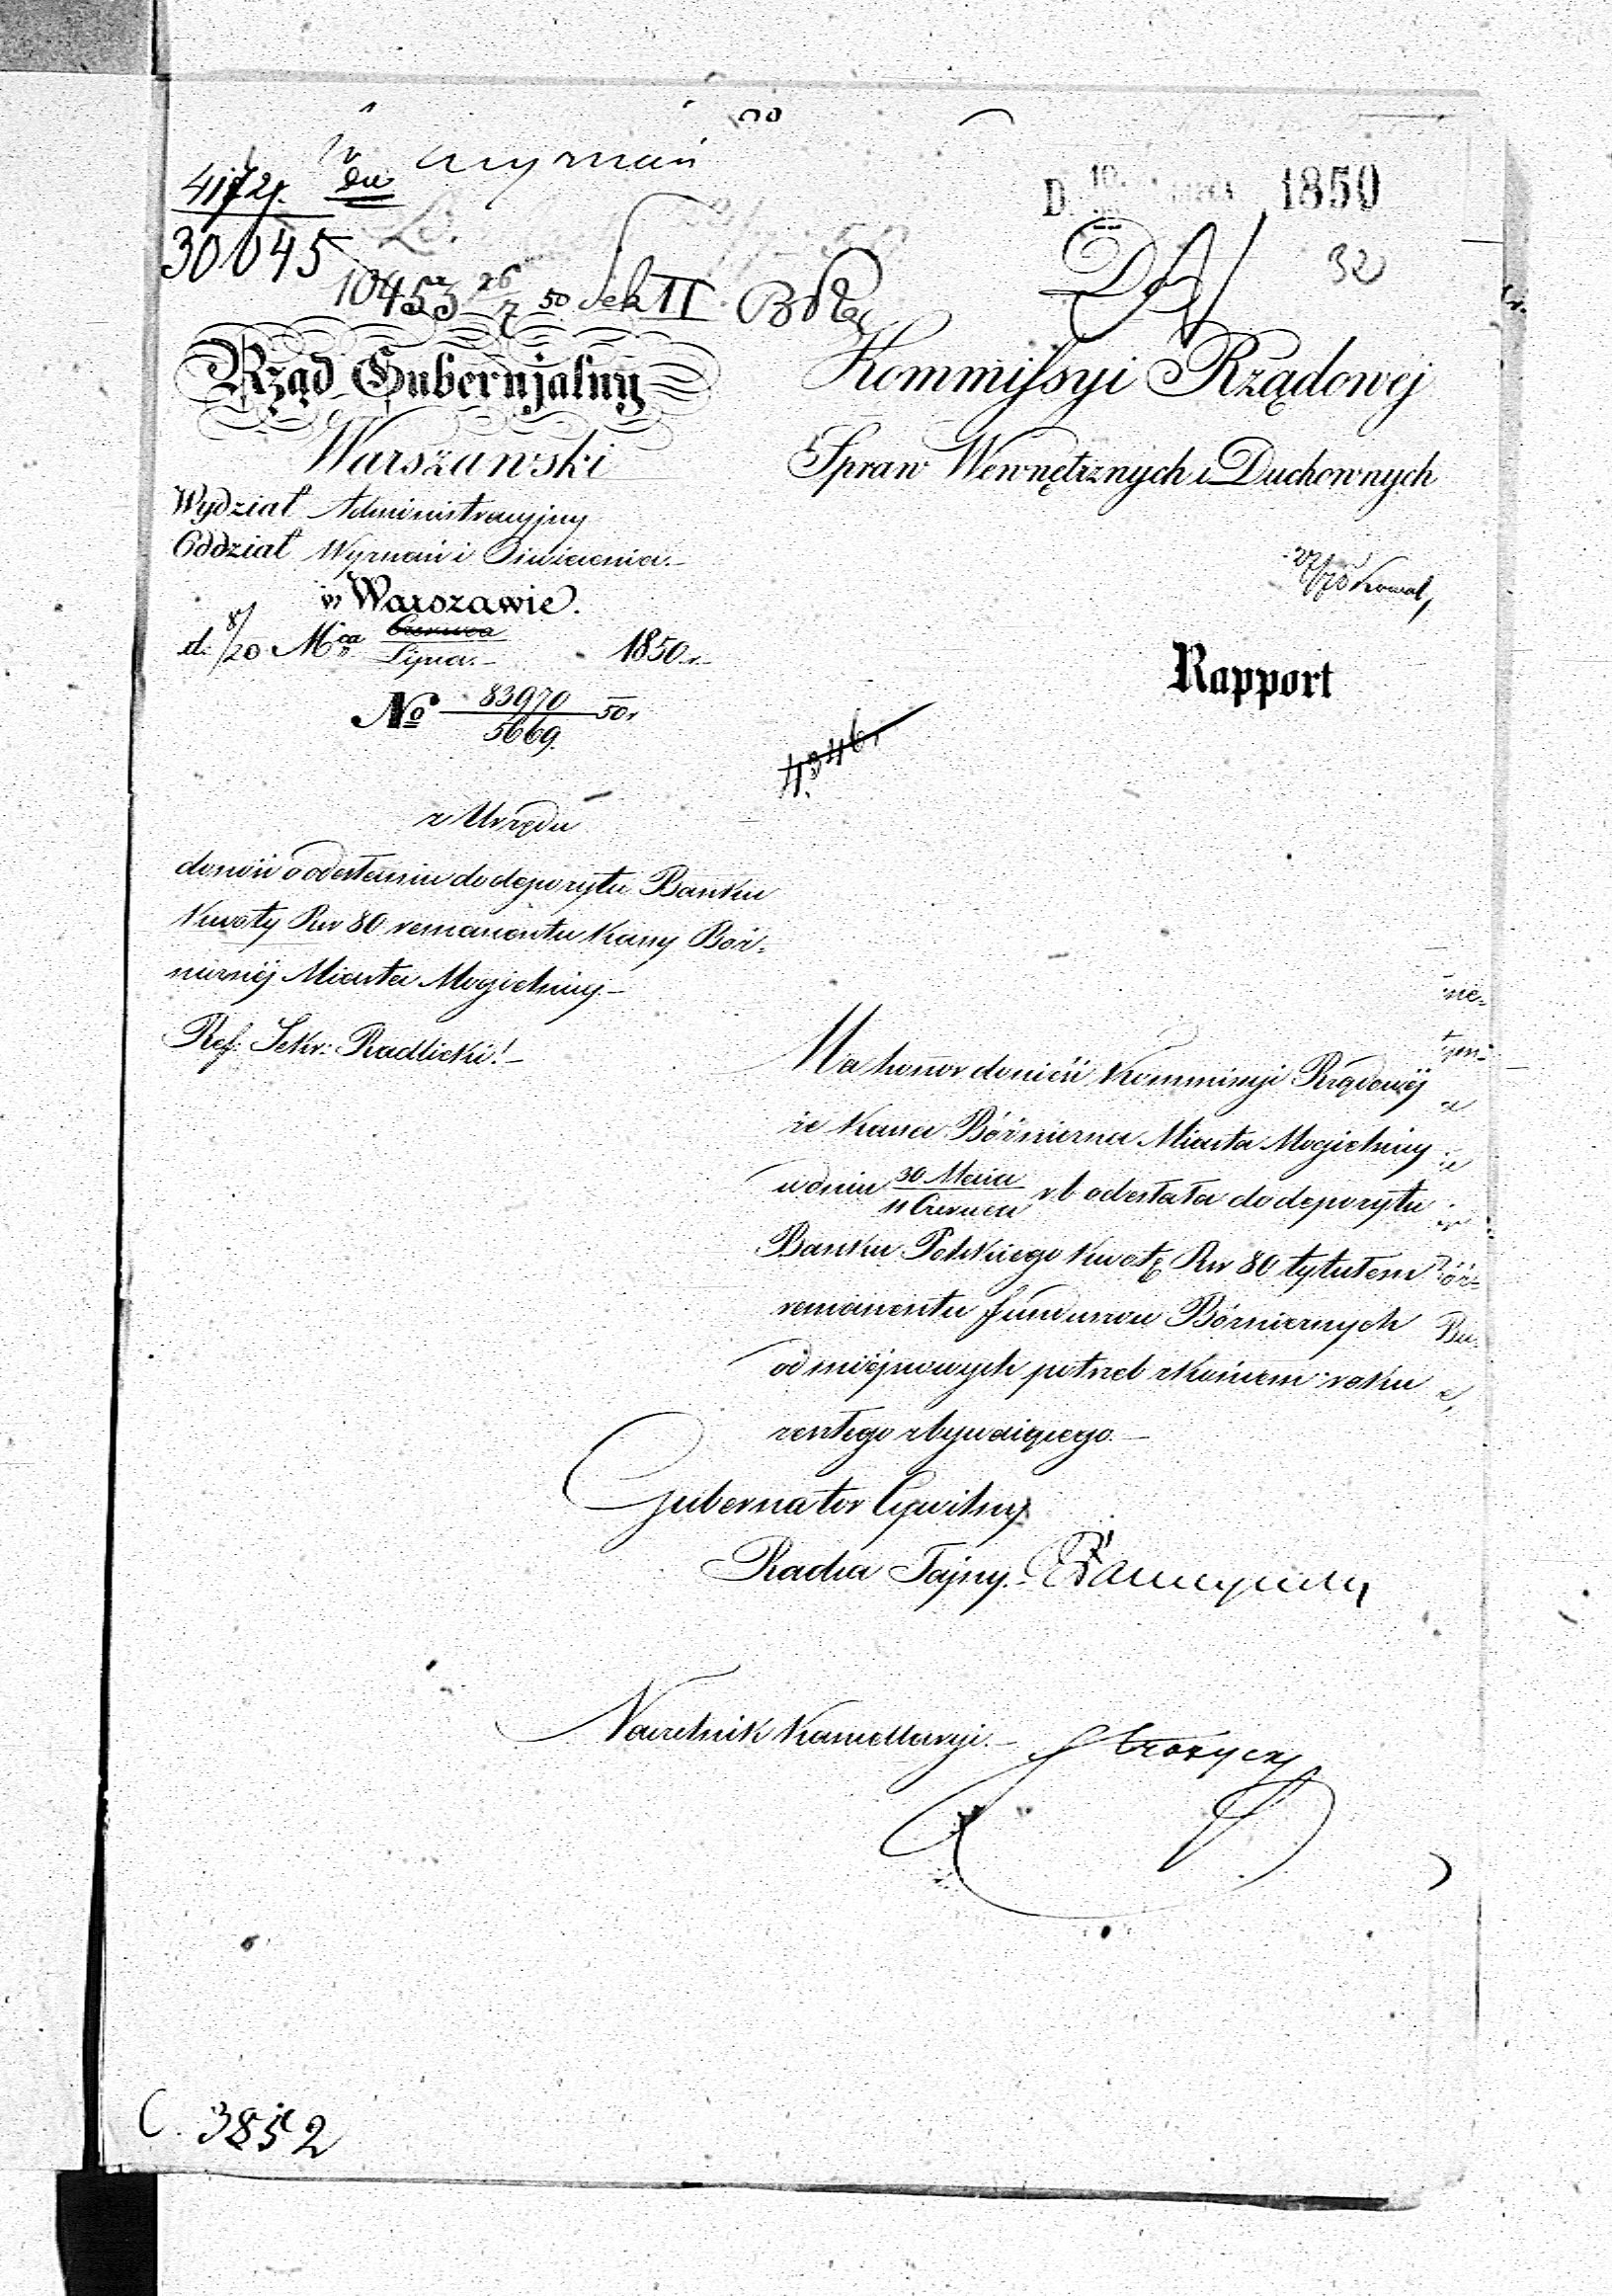 4172
30045
10453 26/7 50 Sek II
D. 10. 1850
32
Rząd Gubernjalny
Warszawski
Wydział Administracyjny
Oddział Wyznań i Oświecenia.
w Warszawie.
d. 8/20 Mca Czerwca / Lipca. 1850 r.
No 83970 / 5669. 50 r
Kommissyi Rządowej
Spraw Wewnętrznych i Duchownych
Rapport
4346
z Urzędu
donosi o odesłaniu do depozytu Banku
Kwoty Rsr 80 remanentu Kassy Boż-
nicznéj Miasta Mogielnicy.
Ref: Sekr: Radlicki!
Ma honor donieść Kommissyi Rządowéj
że Kassa Bóżniczna Miasta Mogielnicy
w dniu 30 Maia / 11 Czerwca r b odesłała do depozytu
Banku Polskiego Kwotę Rsr 80 tytułem
remanentu funduszów Bóżnicznych
od miéjscowych potrzeb z końcem roku
zeszłego zbywaiącego.
Gubernator Cywilny
Radca Tajny.
Naczelnik Kancellaryi.
C. 3852